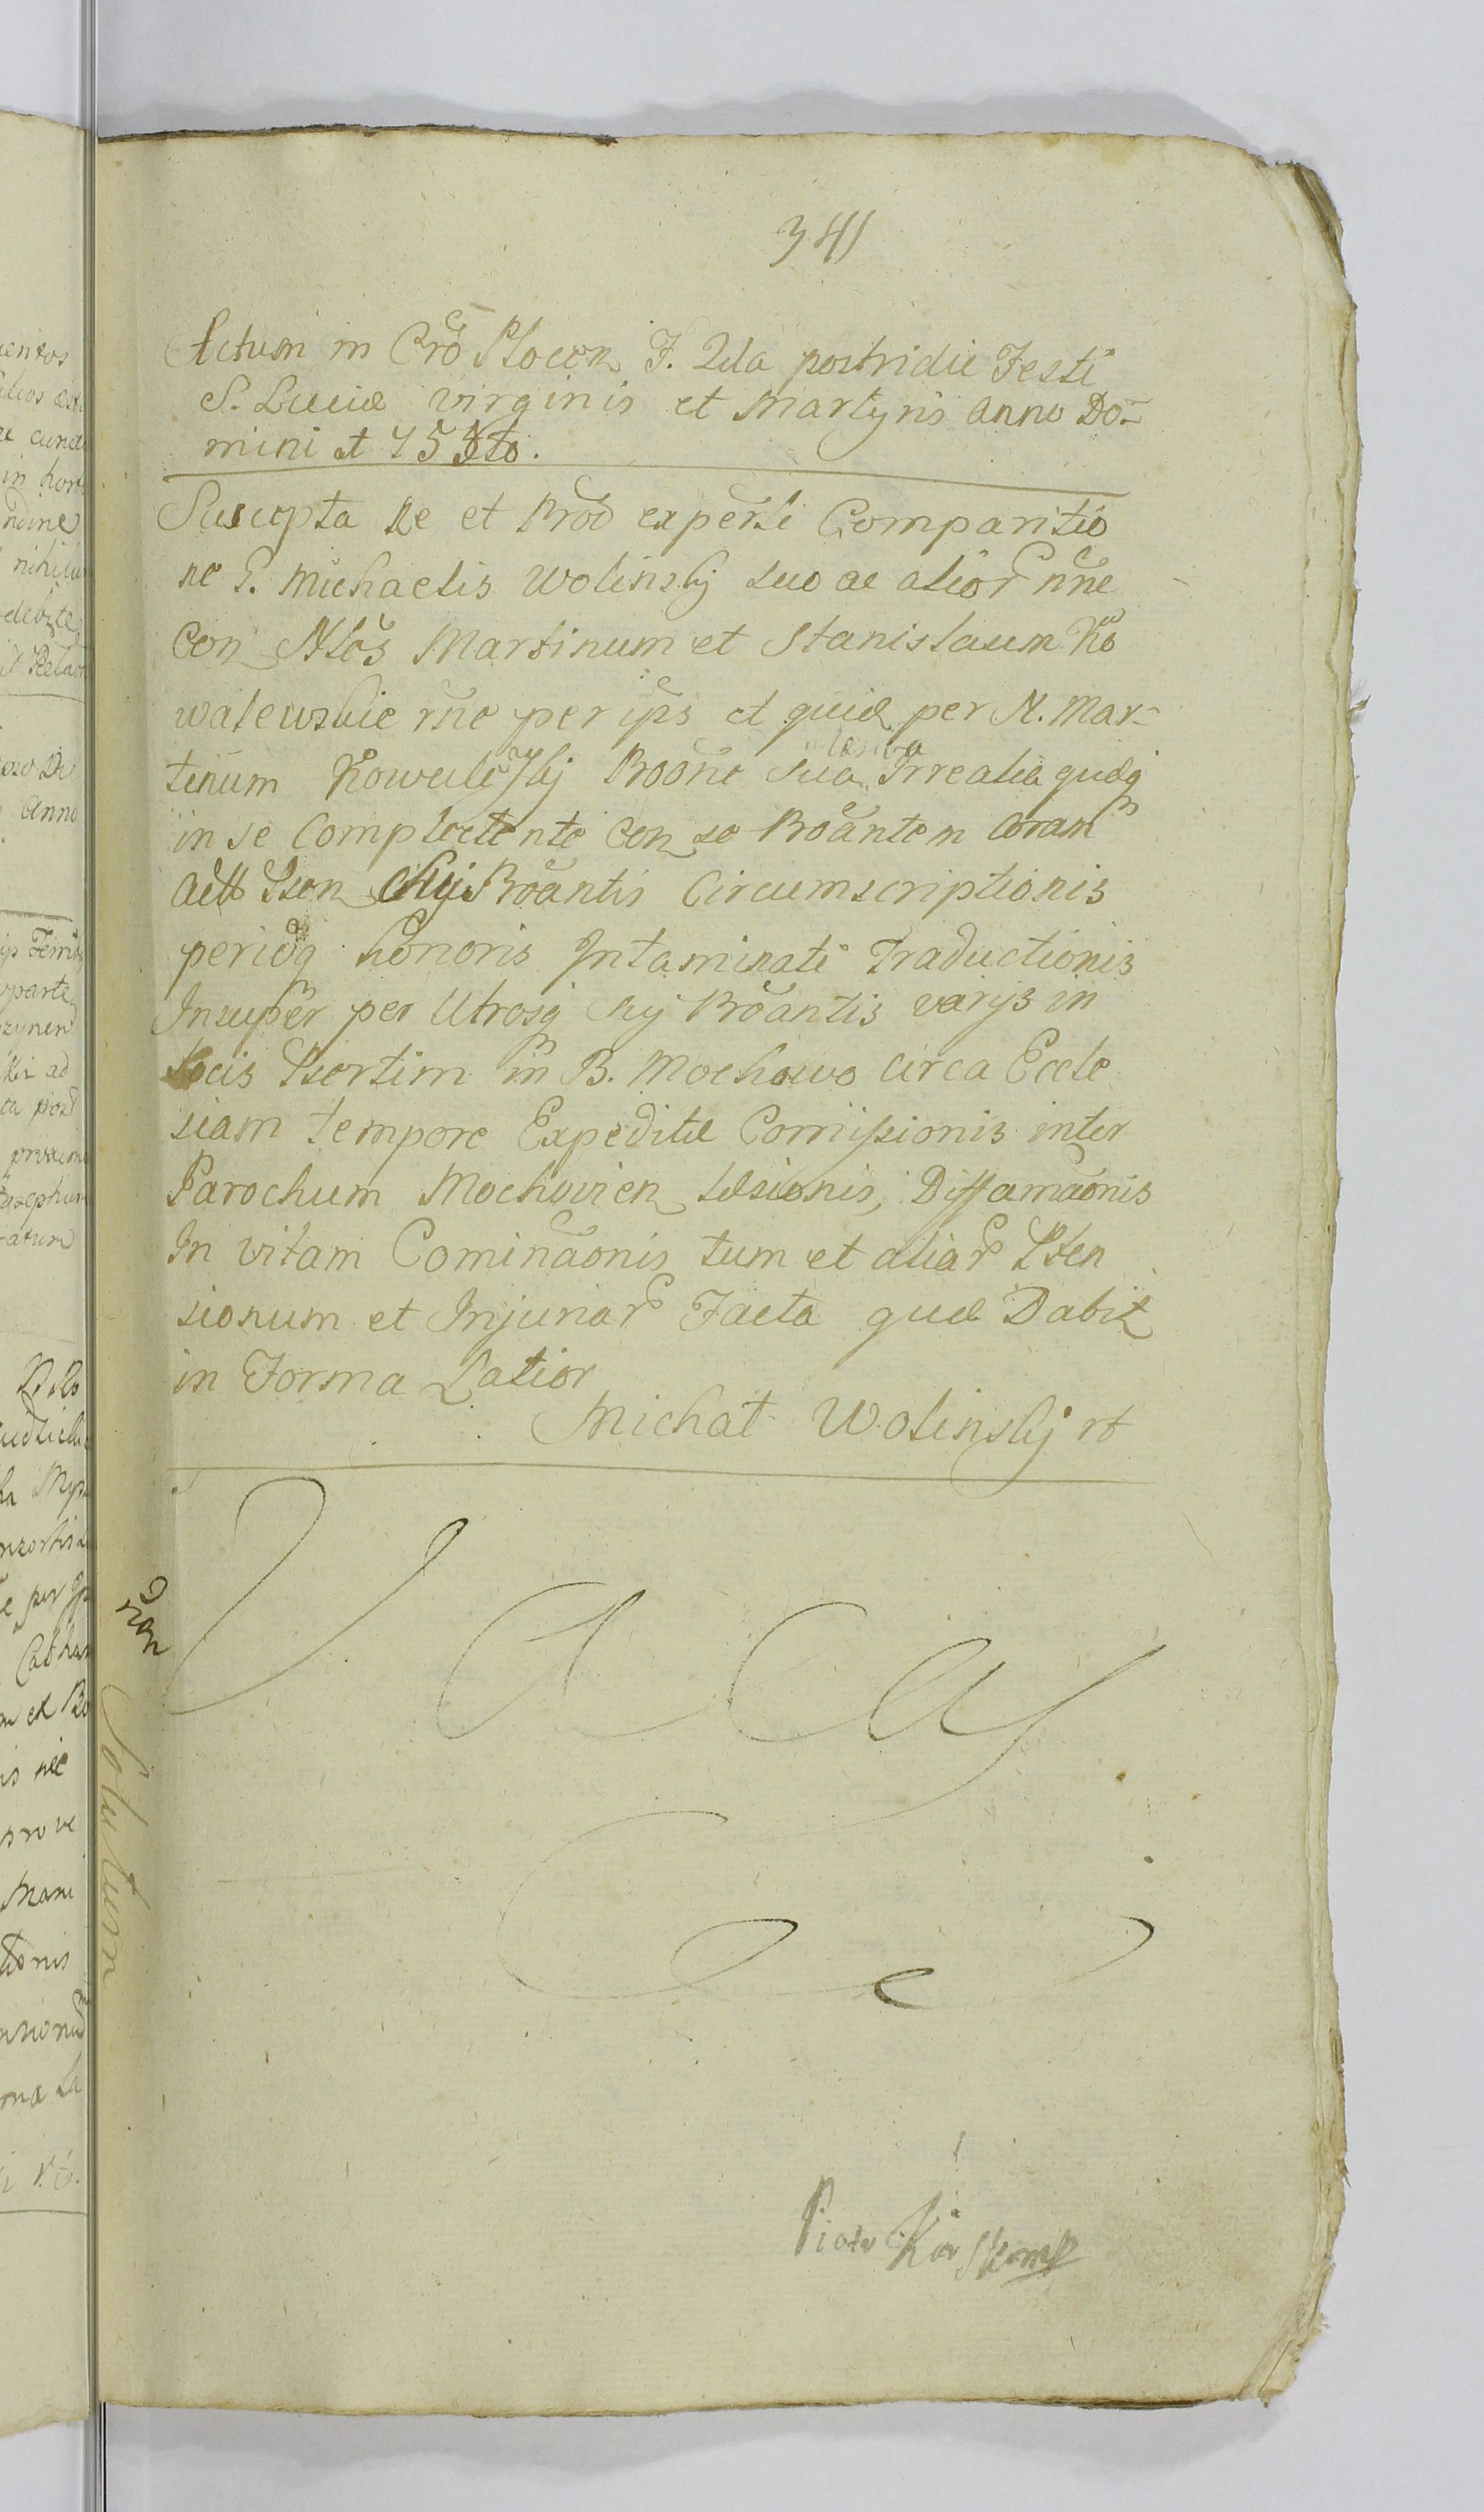 341
Actum in Cro Plocen F. 2da postridie Festi
S. Luciæ virginis et Martyris Anno Do-
mini
Suscepta Re et Prod experli Comparitio
ne G. Michaelis Wolinskij suo ac alior nñe
Con Nlos Martinum et Stanislaum Ko
walewskie rñe per ips et quid per N. Mar-
tinum Kowalewskij Proõne sua Irrealia quæq
in se Complectente Con se Proãntem Coram
actt Pson Proãntis Circumscriptionis
periclq honoris Intaminati Traductionis
Insuper per Utrosq hij Proãntis varijs in
Locis Psertim in B. Mochowo circa Eccle
siam tempore Expeditæ Comissionis inter
Parochum Mochovien læsionis, Diffamaonis
In vitam Cominaonis tum et aliar
sionum et Injuriar Facta quæ Dabit
in Forma Latior
Michał Wolinskij
non
Solutum
Piotr